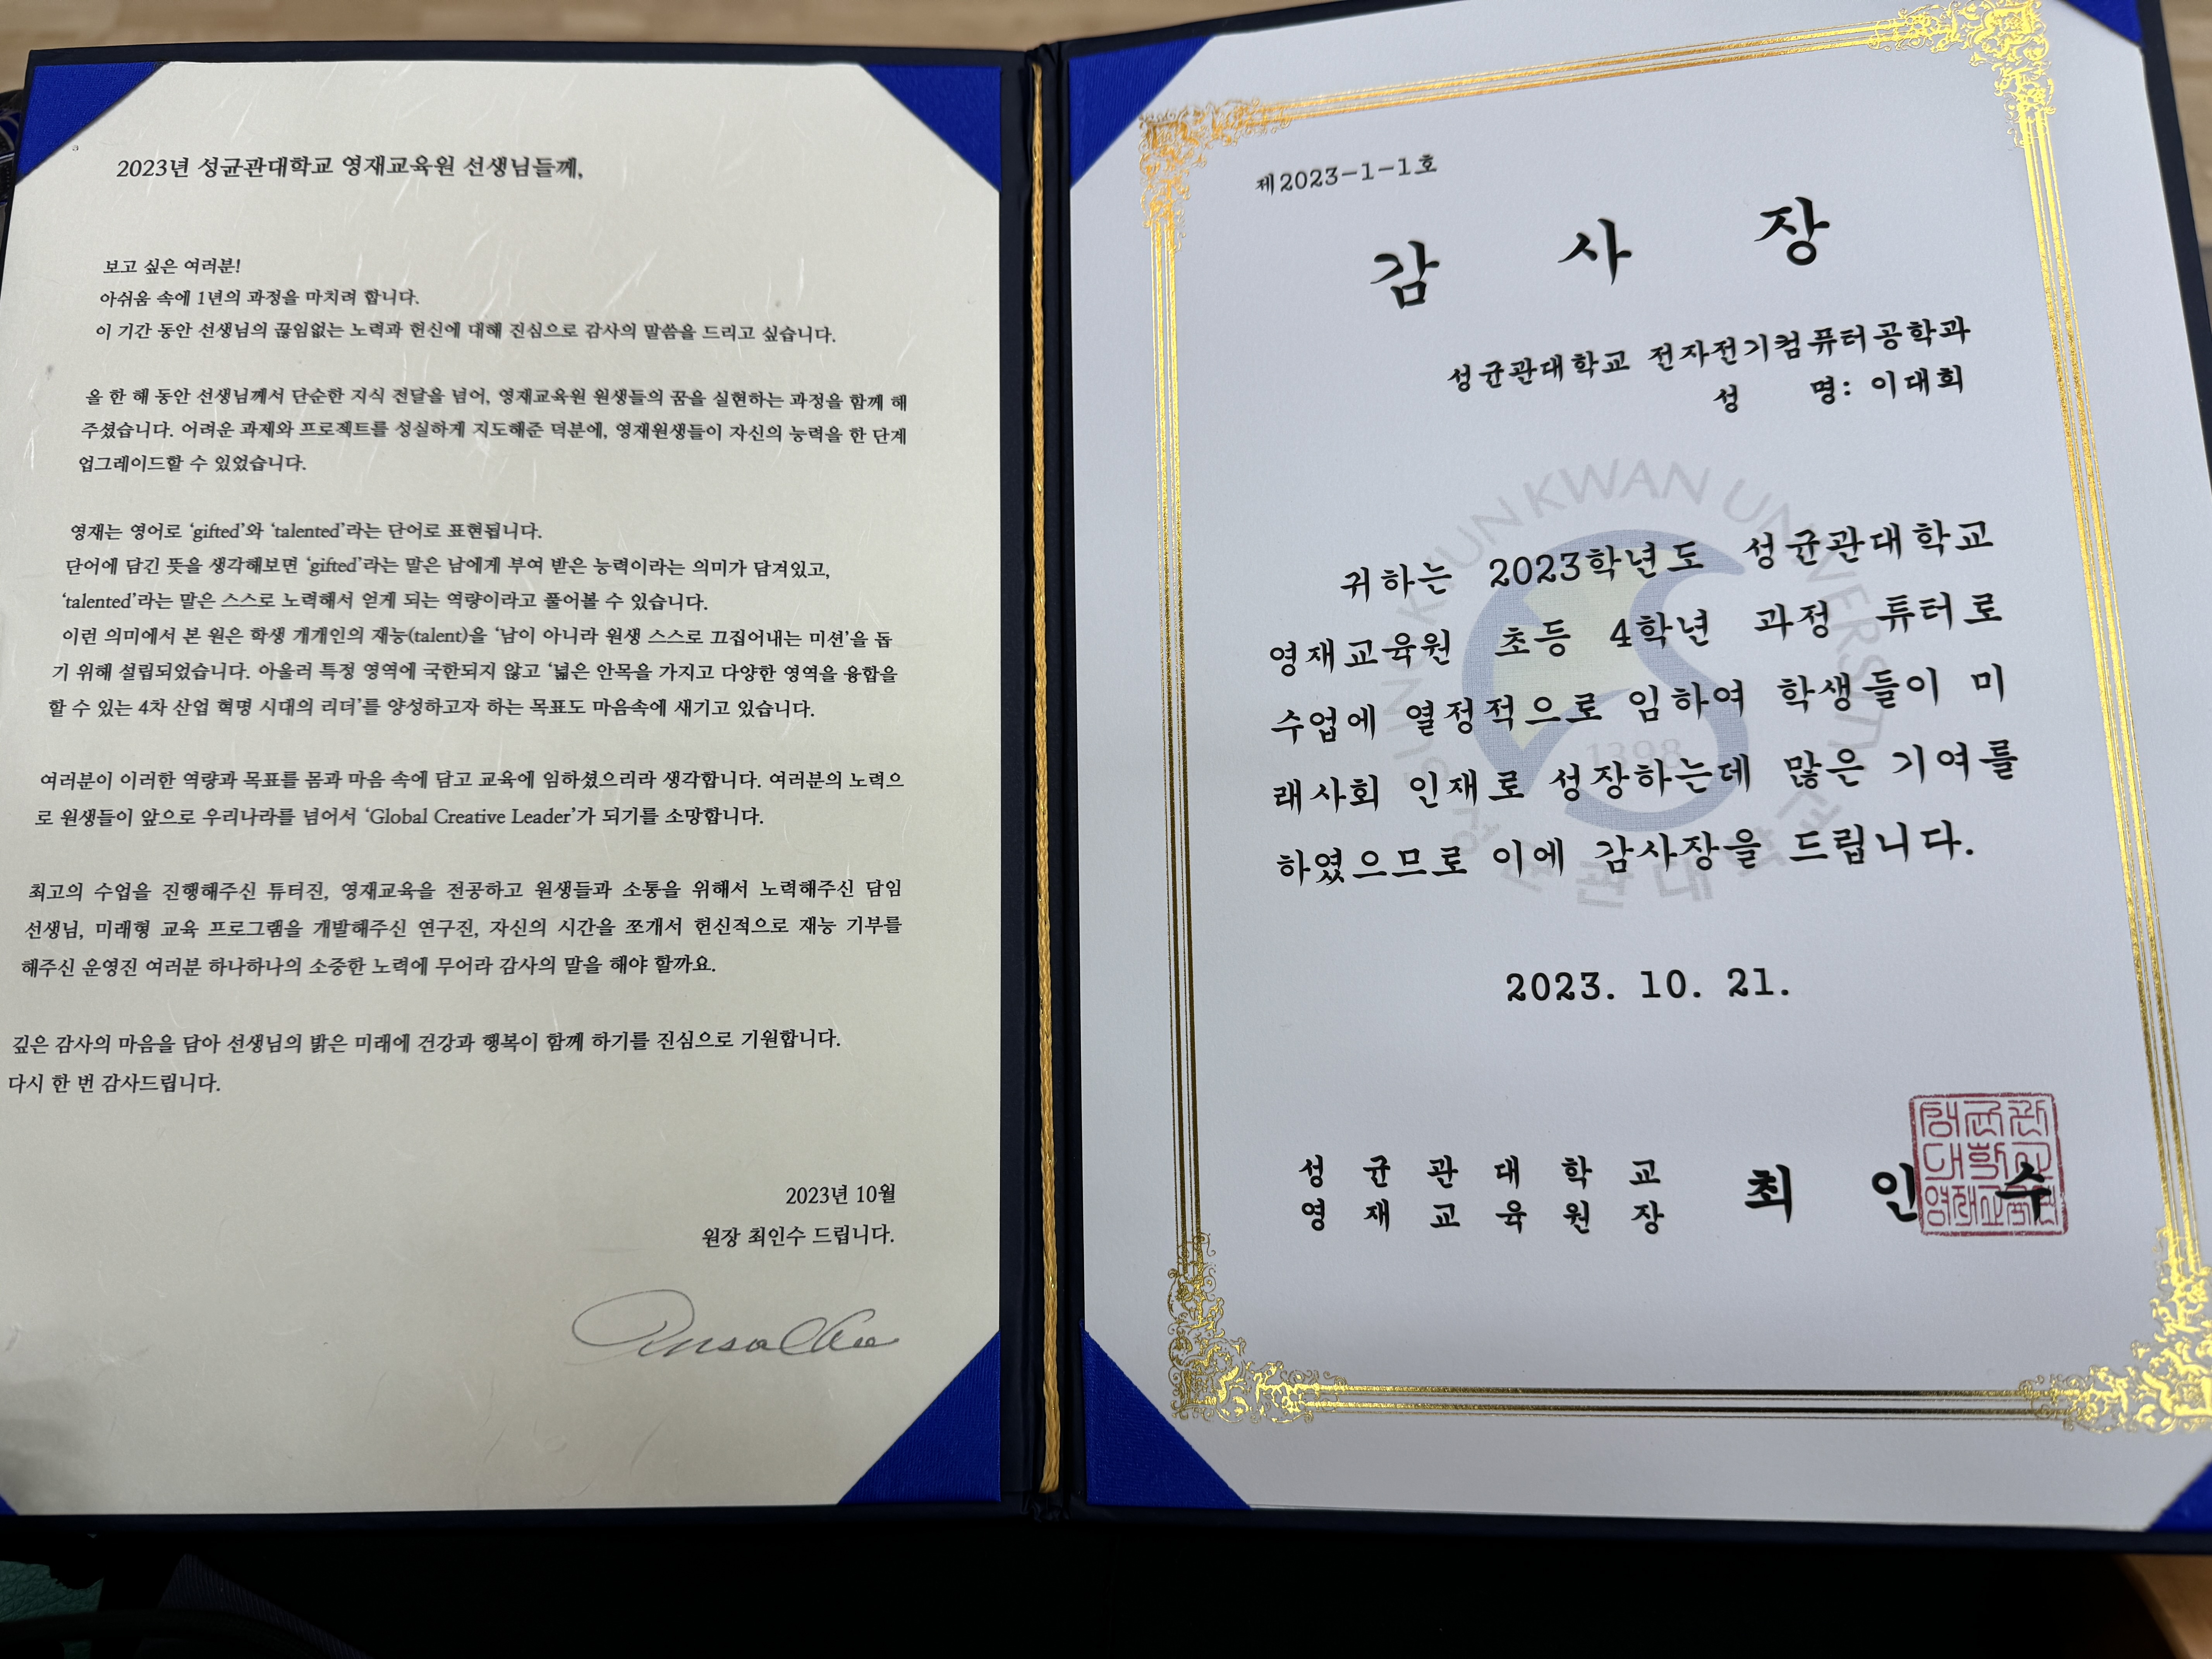 2023년 성균관대학교 영재교육원 선생님들께,
보고 싶은 여러분!
아쉬움 속에 1년의 과정을 마치려 합니다.
이 기간 동안 선생님의 끊임없는 노력과 헌신에 대해 진심으로 감사의 말씀을 드리고 싶습니다.
올 한 해 동안 선생님께서 단순한 지식 전달을 넘어, 영재교육원 원생들의 꿈을 실현하는 과정을 함께 해
주셨습니다. 어려운 과제와 프로젝트를 성실하게 지도해준 덕분에, 영재원생들이 자신의 능력을 한 단계
업그레이드할 수 있었습니다.
영재는 영어로 ‘gifted’와 ‘talented’라는 단어로 표현됩니다.
단어에 담긴 뜻을 생각해보면 ‘gifted’라는 말은 남에게 부여 받은 능력이라는 의미가 담겨있고,
‘talented’라는 말은 스스로 노력해서 얻게 되는 역량이라고 풀어볼 수 있습니다.
이런 의미에서 본 원은 학생 개개인의 재능(talent)을 ‘남이 아니라 원생 스스로 끄집어내는 미션’을 돕
기 위해 설립되었습니다. 아울러 특정 영역에 국한되지 않고 ‘넓은 안목을 가지고 다양한 영역을 융합을
할 수 있는 4차 산업 혁명 시대의 리더’를 양성하고자 하는 목표도 마음속에 새기고 있습니다.
여러분이 이러한 역량과 목표를 몸과 마음 속에 담고 교육에 임하셨으리라 생각합니다. 여러분의 노력으
로 원생들이 앞으로 우리나라를 넘어서 ‘Global Creative Leader’가 되기를 소망합니다.
최고의 수업을 진행해주신 튜터진, 영재교육을 전공하고 원생들과 소통을 위해서 노력해주신 담임
선생님, 미래형 교육 프로그램을 개발해주신 연구진, 자신의 시간을 쪼개서 헌신적으로 재능 기부를
해주신 운영진 여러분 하나하나의 소중한 노력에 무어라 감사의 말을 해야 할까요.
깊은 감사의 마음을 담아 선생님의 밝은 미래에 건강과 행복이 함께 하기를 진심으로 기원합니다.
다시 한 번 감사드립니다.
2023년 10월
원장 최인수 드립니다.
제2023-1-1호
감 사 장
성균관대학교 전자전기컴퓨터공학과
성 명: 이대희
귀하는 2023학년도 성균관대학교
영재교육원 초등 4학년 과정 튜터로
수업에 열정적으로 임하여 학생들이 미
래사회 인재로 성장하는데 많은 기여를
하였으므로 이에 감사장을 드립니다.
SUNGKYUNKWAN UNIVERSITY
1398
성균관대학교
2023. 10. 21.
성 균 관 대 학 교
영 재 교 육 원 장
최 인 수
성균관
대학교
영재교육원